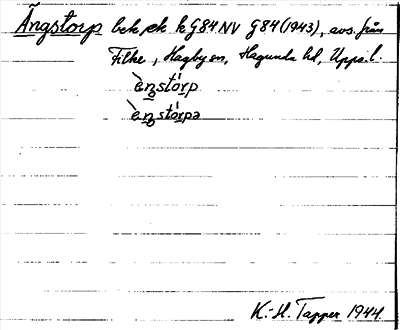 Ängstorp bek ek k G84NV G84(1943), avs. från
Filke, Hagby sn, Hagunda hd, Upps. l.
`ęŋstórp
`ęŋstórpa
K.-H. Tapper 1944.